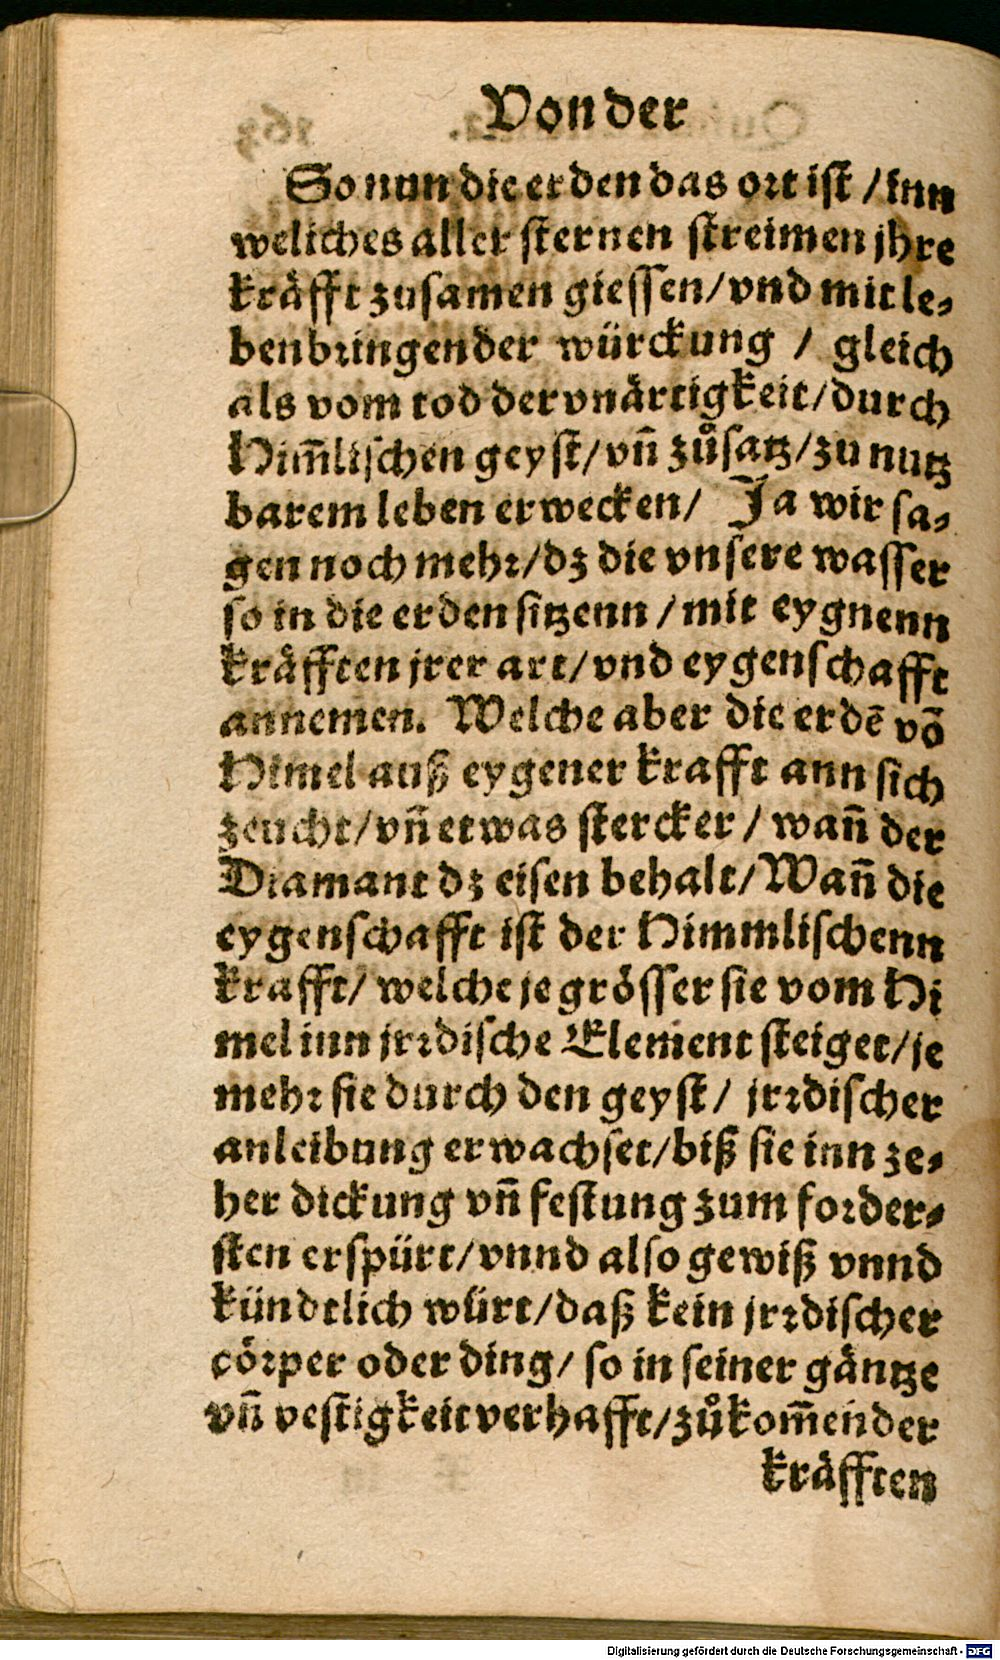 Von der
So nun die erden das ort ist / inn
weliches aller sternen streimen jhre
kräfft zusamen giessen/vnd mit le-
benbringender würckung / gleich
als vom tod der vnärtigkeit/durch
Him̃lischen geyst/vñ zůsatz/zu nutz
barem leben erwecken/ Ja wir sa-
gen noch mehr/dz die vnsere wasser
so in die erden sitzenn / mit eygnenn
kräfften jrer art/vnd eygenschafft
annemen. Welche aber die erdē võ
Himel auß eygener krafft ann sich
zeucht/vñ etwas stercker / wañ der
Diamant dz eisen behalt/Wañ die
eygenschafft ist der Himmlischenn
krafft/ welche je grösser sie vom Hi
mel inn jrrdische Element steiget/je
mehr sie durch den geyst/ jrrdischer
anleibung erwachset/biß sie inn ze-
her dickung vñ festung zum forder-
sten erspürt/vnnd also gewiß vnnd
kündtlich würt/daß kein jrrdischer
cörper oder ding/ so in seiner gäntze
vñ vestigkeit verhafft/zůkom̃en der
kräfften
Digitalisierung gefördert durch die Deutsche Forschungsgemeinschaft - DFG